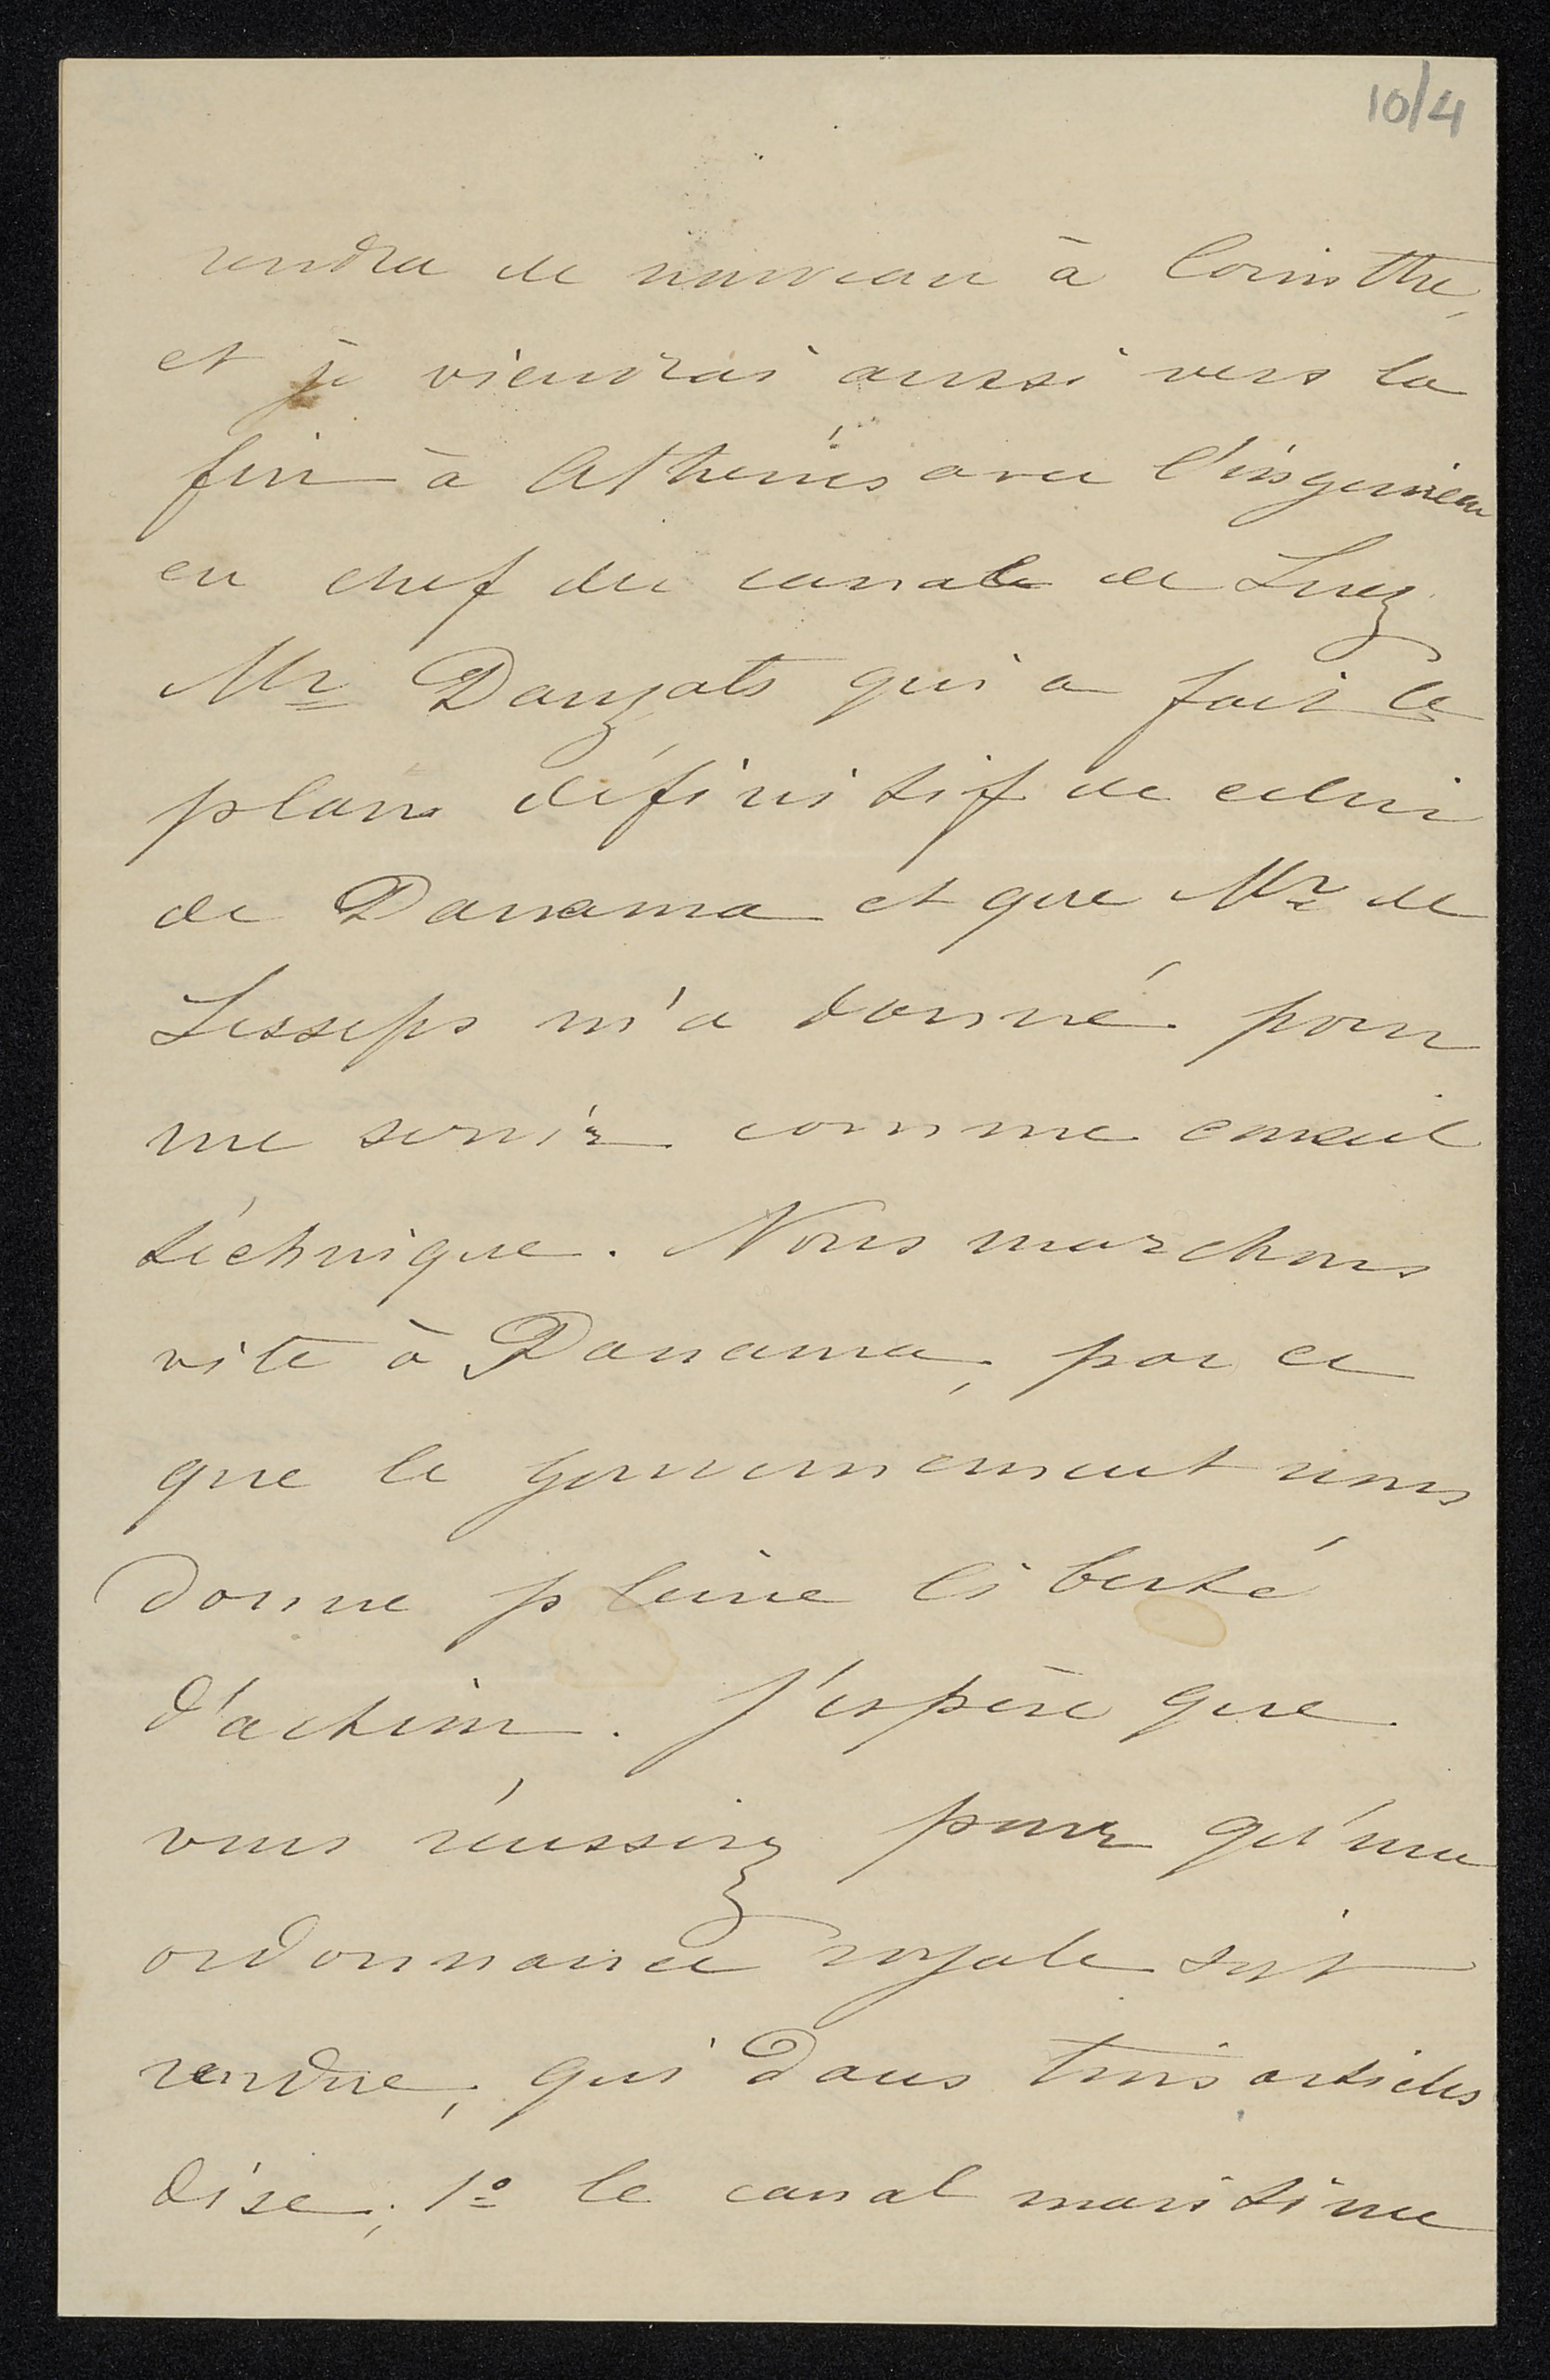 10/4
rendra de nouveau à Corinthe,
et je viendrai aussi vers la
fin à Athènes avec l'ingenieur
en chef du canal de Suez
Mr Dauzats qui a fait le
plan définitif de celui
de Panama et que Mr de
Lesseps m'a donné pour
me servir comme conseil
téchnique. Nous marchons
vite à Panama, par ce
que le gouvernement nous
donne pleine liberté
d'action. J'espère que
vous réussirez pour qu'une
ordonnance royale soit
rendue, qui dans trois articles
dise; 1º le canal maritime